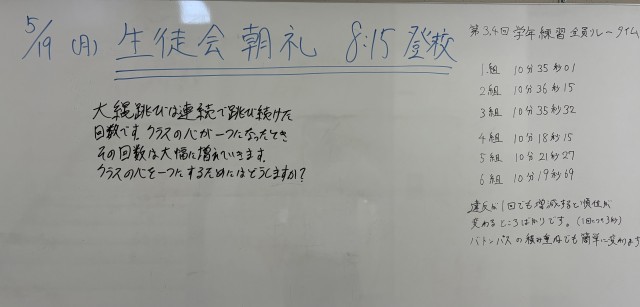 5/19 (月) 生徒会朝礼 8:15 登校
大縄跳びは連続で跳び続けた
回数です。クラスの心が一つになったとき
その回数は大幅に増えていきます。
クラスの心を一つにするためにはどうしますか?
第3.4回学年練習全員リレータイム
1組 10分35秒01
2組 10分36秒15
3組 10分35秒32
4組 10分18秒15
5組 10分21秒27
6組 10分19秒69
違反が1回でも増減すると順位が
変わるところばかりです。(1回につき3秒)
バトンパスの積み重ねでも簡単に変わります